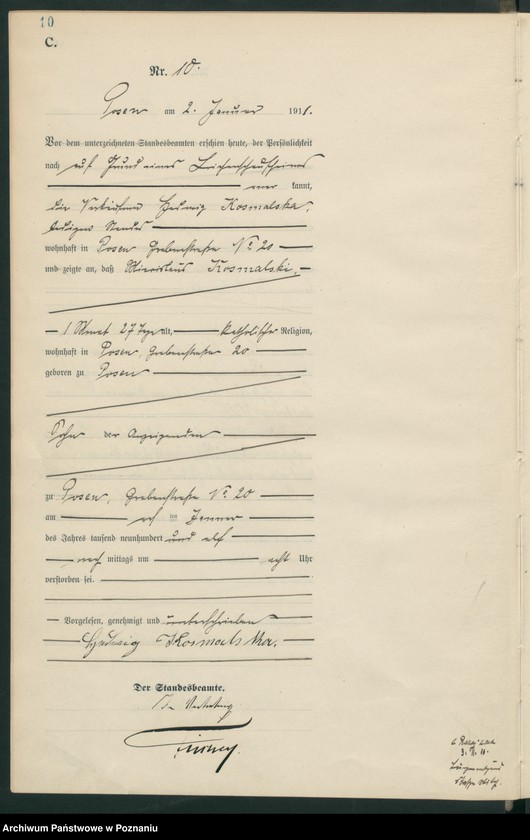 10
C.
Nr. 10.
Posen am 2. Januar 1911.
Vor dem unterzeichneten Standesbeamten erschien heute, der Persönlichkeit
nach auf Grund eines Leichenschauscheines
aner kannt,
die Verkäuferin Hedwig Kosmalska,
ledigen Standes
wohnhaft in Posen Grabenstraße No 20
und zeigte an, daß Kosmalski,
1 Monat 27 Tage alt, katholischer Religion,
wohnhaft in Posen, Grabenstraße 20
geboren zu Posen
Sohn der Anzeigenden
zu Posen, Grabenstraße No 20
am im Januar
des Jahres tausend neunhundert und elf
nach mittags um acht Uhr
verstorben sei.
Vorgelesen, genehmigt und unterschrieben
Hedwig Kosmalska.
Der Standesbeamte.
In Vertretung
Archiwum Państwowe w Poznaniu